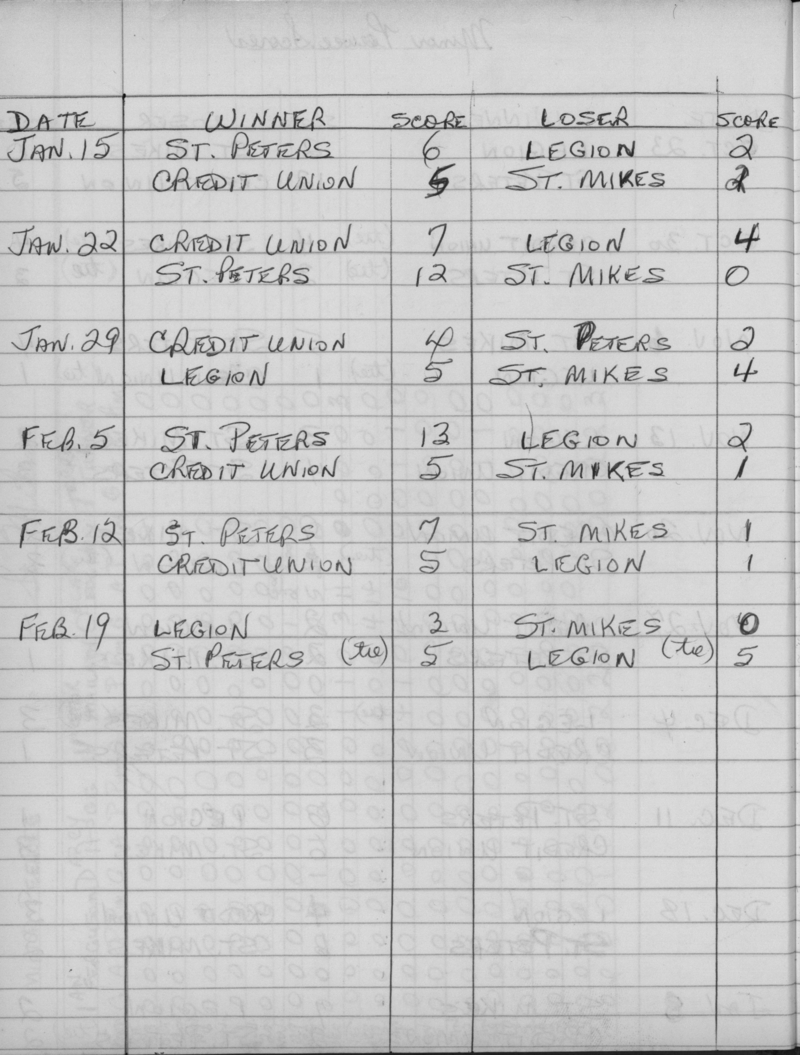 DATE WINNER SCORE LOSER SCORE
JAN. 15 ST. PETERS 6 LEGION 2
CREDIT UNION 5 ST. MIKES 2
JAN. 22 CREDIT UNION 7 LEGION 4
ST. PETERS 12 ST. MIKES 0
JAN. 29 CREDIT UNION 4 ST. PETERS 2
LEGION 5 ST. MIKES 4
FEB. 5 ST. PETERS 13 LEGION 2
CREDIT UNION 5 ST. MIKES 1
FEB. 12 ST. PETERS 7 ST. MIKES 1
CREDIT UNION 5 LEGION 1
FEB. 19 LEGION 3 ST. MIKES 0
ST. PETERS (tie) 5 LEGION (tie) 5